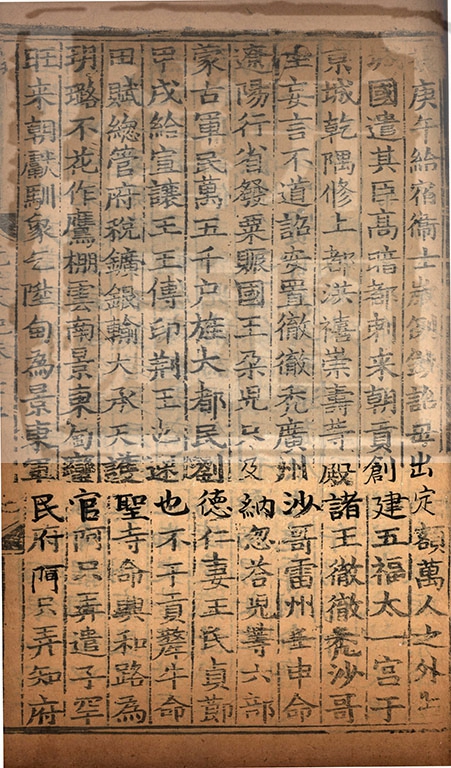 庚午給宿衛士歲例鈔詔毋出定額萬人之外
國遣其臣高暗都剌来朝貢創建五福太一宮于
京城乾隅修上都洪禧崇壽等殿諸王徹徹禿沙哥
坐妄言不道詔安置徹徹禿廣州沙哥雷州壬申命
遼陽行省發粟賑國王朶兒只及納忽荅兒等六部
蒙古軍民萬五千户旌大都民劉德仁妻王氏貞節
甲戌給宣讓王王傳印荆王也速也不干貢犛牛命
田賦總管府稅鑛銀輸大承天護聖寺命興和路為
玥璐不花作鷹棚雲南景東甸蠻官阿只弄遣子罕
旺来朝獻馴象乞陞甸為景東軍民府阿只弄知府